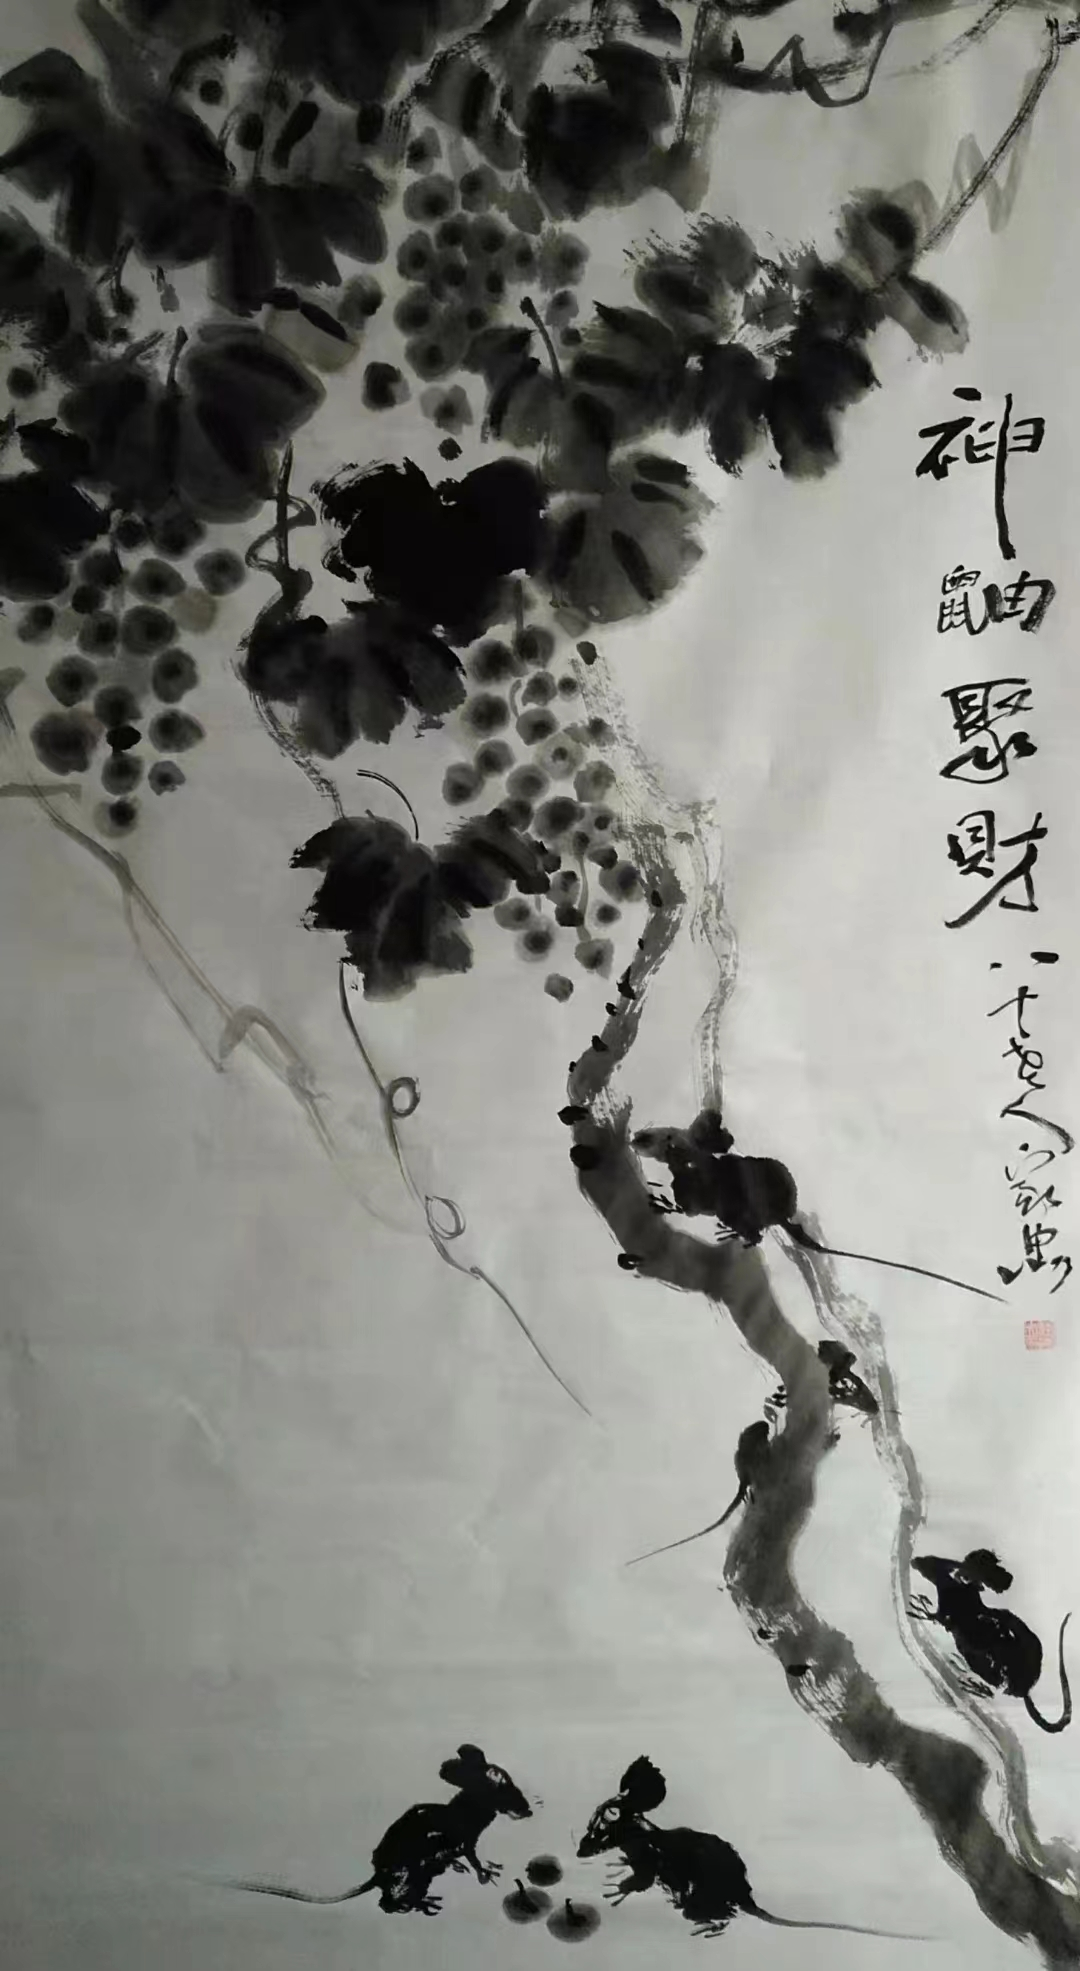 神鼬聚財 八十老人